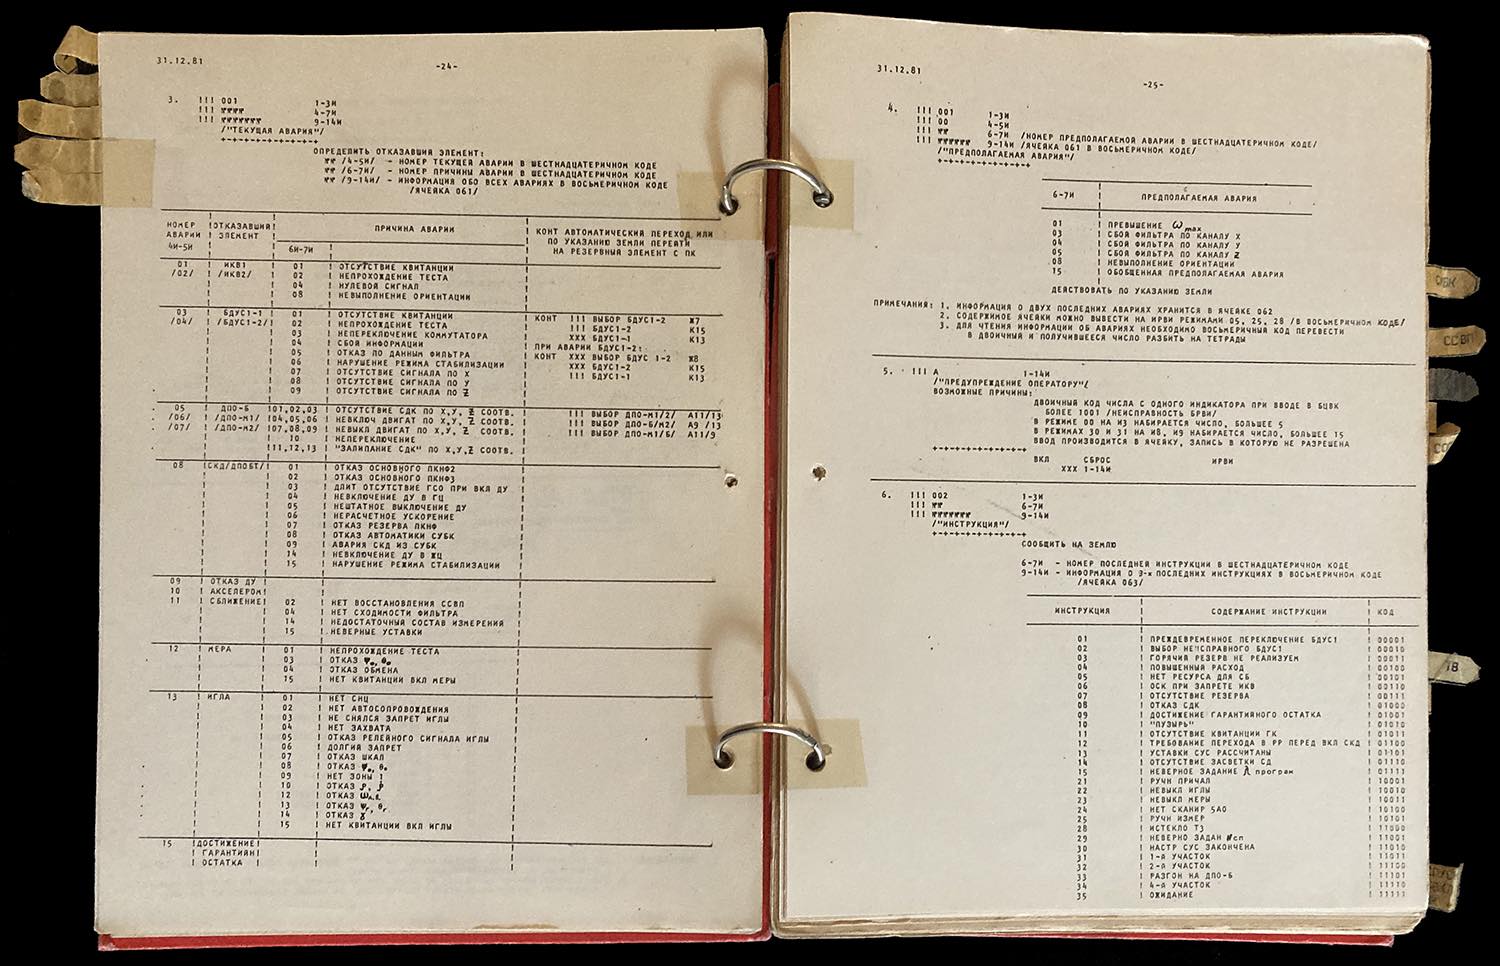 31.12.81
-24-
3. III 001 1-3И
III ΠΠΠΠ 4-7И
III ΠΠΠΠΠΠ 9-14И
/"ТЕКУЩАЯ АВАРИЯ"/
ОПРЕДЕЛИТЬ ОТКАЗАВШИЙ ЭЛЕМЕНТ:
ΠΠ /4-5И/ - НОМЕР ТЕКУЩЕЙ АВАРИИ В ШЕСТНАДЦАТЕРИЧНОМ КОДЕ
ΠΠ /6-7И/ - НОМЕР ПРИЧИНЫ АВАРИИ В ШЕСТНАДЦАТЕРИЧНОМ КОДЕ
ΠΠ /9-14И/ - ИНФОРМАЦИЯ ОБО ВСЕХ АВАРИЯХ В ВОСЬМЕРИЧНОМ КОДЕ
/ЯЧЕЙКА 061/
НОМЕР АВАРИИ 4И-5И
ОТКАЗАВШИЙ ЭЛЕМЕНТ
ПРИЧИНА АВАРИИ
6И-7И
КОНТ АВТОМАТИЧЕСКИЙ ПЕРЕХОД ИЛИ
ПО УКАЗАНИЮ ЗЕМЛИ ПЕРЕЙТИ
НА РЕЗЕРВНЫЙ ЭЛЕМЕНТ С ПК
01 ИКВ1 01 ОТСУТСТВИЕ КВИТАНЦИИ
/02/ /ИКВ2/ 02 НЕПРОХОЖДЕНИЕ ТЕСТА
04 НУЛЕВОЙ СИГНАЛ
08 НЕВЫПОЛНЕНИЕ ОРИЕНТАЦИИ
03 БДУС1-1 01 ОТСУТСТВИЕ КВИТАНЦИИ КОНТ III ВЫБОР БДУС1-2 Ж7
/04/ /БДУС1-2/ 02 НЕПРОХОЖДЕНИЕ ТЕСТА III БДУС1-2 К15
03 НЕПЕРЕКЛЮЧЕНИЕ КОММУТАТОРА XXX БДУС1-1 К13
04 СБОЙ ИНФОРМАЦИИ ПРИ АВАРИИ БДУС1-2:
05 ОТКАЗ ПО ДАННЫМ ФИЛЬТРА КОНТ XXX ВЫБОР БДУС 1-2 Ж8
06 НАРУШЕНИЕ РЕЖИМА СТАБИЛИЗАЦИИ XXX БДУС1-2 К15
07 ОТСУТСТВИЕ СИГНАЛА ПО X III БДУС1-1 К13
08 ОТСУТСТВИЕ СИГНАЛА ПО У
09 ОТСУТСТВИЕ СИГНАЛА ПО Z
05 ДПО-Б 01,02,03 ОТСУТСТВИЕ СДК ПО X,У,Z СООТВ. III ВЫБОР ДПО-М1/2/ А11/13
/06/ /ДПО-М1/ 04,05,06 НЕВКЛЮЧ ДВИГАТ ПО X,У,Z СООТВ. III ВЫБОР ДПО-Б/М2/ А9 /13
/07/ /ДПО-М2/ 07,08,09 НЕВЫКЛ ДВИГАТ ПО X,У,Z СООТВ. III ВЫБОР ДПО-М1/Б/ А11/9
10 НЕПЕРЕКЛЮЧЕНИЕ
11,12,13 "ЗАЛИПАНИЕ СДК" ПО X,У,Z СООТВ.
08 СКД/ДПОБТ/ 01 ОТКАЗ ОСНОВНОГО ПКНФ2
02 ОТКАЗ ОСНОВНОГО ПКНФ3
03 ДЛИТ ОТСУТСТВИЕ ГСО ПРИ ВКЛ ДУ
04 НЕВКЛЮЧЕНИЕ ДУ В ГЦ
05 НЕШТАТНОЕ ВЫКЛЮЧЕНИЕ ДУ
06 НЕРАСЧЕТНОЕ УСКОРЕНИЕ
07 ОТКАЗ РЕЗЕРВА ПКНФ
08 ОТКАЗ АВТОМАТИКИ СУБК
09 АВАРИЯ СКД ИЗ СУБК
14 НЕВКЛЮЧЕНИЕ ДУ В ЖЦ
15 НАРУШЕНИЕ РЕЖИМА СТАБИЛИЗАЦИИ
09 ОТКАЗ ДУ
10 АКСЕЛЕРОМ
11 СБЛИЖЕНИЕ 02 НЕТ ВОССТАНОВЛЕНИЯ ССВП
04 НЕТ СХОДИМОСТИ ФИЛЬТРА
14 НЕДОСТАТОЧНЫЙ СОСТАВ ИЗМЕРЕНИЙ
15 НЕВЕРНЫЕ УСТАВКИ
12 МЕРА 01 НЕПРОХОЖДЕНИЕ ТЕСТА
03 ОТКАЗ Ψₙ, θₙ
04 ОТКАЗ ОБМЕНА
15 НЕТ КВИТАНЦИИ ВКЛ МЕРЫ
13 ИГЛА 01 НЕТ СНЦ
02 НЕТ АВТОСОПРОВОЖДЕНИЯ
03 НЕ СНЯЛСЯ ЗАПРЕТ ИГЛЫ
04 НЕТ ЗАХВАТА
05 ОТКАЗ РЕЛЕЙНОГО СИГНАЛА ИГЛЫ
06 ДОЛГИЙ ЗАПРЕТ
07 ОТКАЗ ШКАЛ
08 ОТКАЗ Ψₙ, θₙ
09 НЕТ ЗОНЫ 1
10 ОТКАЗ ρ, ρ̇
12 ОТКАЗ ω
13 ОТКАЗ Ψг, θг
14 ОТКАЗ γ
15 НЕТ КВИТАНЦИИ ВКЛ ИГЛЫ
15 ДОСТИЖЕНИЕ
ГАРАНТИЯН
ОСТАТКА
31.12.81
-25-
4. III 001 1-3И
III 00 4-5И
III ΠΠ 6-7И /НОМЕР ПРЕДПОЛАГАЕМОЙ АВАРИИ В ШЕСТНАДЦАТЕРИЧНОМ КОДЕ/
III ΠΠΠΠΠΠ 9-14И /ЯЧЕЙКА 061 В ВОСЬМЕРИЧНОМ КОДЕ/
/"ПРЕДПОЛАГАЕМАЯ АВАРИЯ"/
6-7И ПРЕДПОЛАГАЕМАЯ АВАРИЯ
01 ПРЕВЫШЕНИЕ ω max
03 СБОЙ ФИЛЬТРА ПО КАНАЛУ X
04 СБОЙ ФИЛЬТРА ПО КАНАЛУ У
05 СБОЙ ФИЛЬТРА ПО КАНАЛУ Z
08 НЕВЫПОЛНЕНИЕ ОРИЕНТАЦИИ
15 ОБОБЩЕННАЯ ПРЕДПОЛАГАЕМАЯ АВАРИЯ
ДЕЙСТВОВАТЬ ПО УКАЗАНИЮ ЗЕМЛИ
ПРИМЕЧАНИЯ: 1. ИНФОРМАЦИЯ О ДВУХ ПОСЛЕДНИХ АВАРИЯХ ХРАНИТСЯ В ЯЧЕЙКЕ 062
2. СОДЕРЖИМОЕ ЯЧЕЙКИ МОЖНО ВЫВЕСТИ НА ИРВИ РЕЖИМАМИ 05, 25, 28 /В ВОСЬМЕРИЧНОМ КОДЕ/
3. ДЛЯ ЧТЕНИЯ ИНФОРМАЦИИ ОБ АВАРИЯХ НЕОБХОДИМО ВОСЬМЕРИЧНЫЙ КОД ПЕРЕВЕСТИ
В ДВОИЧНЫЙ И ПОЛУЧИВШЕЕСЯ ЧИСЛО РАЗБИТЬ НА ТЕТРАДЫ
5. III А 1-14И
/"ПРЕДУПРЕЖДЕНИЕ ОПЕРАТОРУ"/
ВОЗМОЖНЫЕ ПРИЧИНЫ:
ДВОИЧНЫЙ КОД ЧИСЛА С ОДНОГО ИНДИКАТОРА ПРИ ВВОДЕ В БЦВК
БОЛЕЕ 1001 /НЕИСПРАВНОСТЬ БРВИ/
В РЕЖИМЕ 00 НА И3 НАБИРАЕТСЯ ЧИСЛО, БОЛЬШЕЕ 5
В РЕЖИМАХ 30 И 31 НА И8, И9 НАБИРАЕТСЯ ЧИСЛО, БОЛЬШЕЕ 15
ВВОД ПРОИЗВОДИТСЯ В ЯЧЕЙКУ, ЗАПИСЬ В КОТОРУЮ НЕ РАЗРЕШЕНА
ВКЛ СБРОС ИРВИ
XXX 1-14И
6. III 002 1-3И
III ΠΠ 6-7И
III ΠΠΠΠΠΠ 9-14И
/"ИНСТРУКЦИЯ"/
СООБЩИТЬ НА ЗЕМЛЮ
6-7И - НОМЕР ПОСЛЕДНЕЙ ИНСТРУКЦИИ В ШЕСТНАДЦАТЕРИЧНОМ КОДЕ
9-14И - ИНФОРМАЦИЯ О 3-х ПОСЛЕДНИХ ИНСТРУКЦИЯХ В ВОСЬМЕРИЧНОМ КОДЕ
/ЯЧЕЙКА 063/
ИНСТРУКЦИЯ СОДЕРЖАНИЕ ИНСТРУКЦИИ КОД
01 ПРЕЖДЕВРЕМЕННОЕ ПЕРЕКЛЮЧЕНИЕ БДУС1 00001
02 ВЫБОР НЕИСПРАВНОГО БДУС1 00010
03 ГОРЯЧИЙ РЕЗЕРВ НЕ РЕАЛИЗУЕМ 00011
04 ПОВЫШЕННЫЙ РАСХОД 00100
05 НЕТ РЕСУРСА ДЛЯ СБ 00101
06 ОСК ПРИ ЗАПРЕТЕ ИКВ 00110
07 ОТСУТСТВИЕ РЕЗЕРВА 00111
08 ОТКАЗ СДК 01000
09 ДОСТИЖЕНИЕ ГАРАНТИЙНОГО ОСТАТКА 01001
10 "ПУЗЫРЬ" 01010
11 ОТСУТСТВИЕ КВИТАНЦИИ ГК 01011
12 ТРЕБОВАНИЕ ПЕРЕХОДА В РР ПЕРЕД ВКЛ СКД 01100
13 УСТАВКИ СУС РАССЧИТАНЫ 01101
14 ОТСУТСТВИЕ ЗАСВЕТКИ СД 01110
15 НЕВЕРНОЕ ЗАДАНИЕ λ програм 01111
21 РУЧН ПРИЧАЛ 10001
22 НЕВЫКЛ ИГЛЫ 10010
23 НЕВЫКЛ МЕРЫ 10011
24 НЕТ СКАНИР 5АО 10100
25 РУЧН ИЗМЕР 10101
28 ИСТЕКЛО Т3 11000
29 НЕВЕРНО ЗАДАН Nсп 11001
30 НАСТР СУС ЗАКОНЧЕНА 11010
31 1-Й УЧАСТОК 11011
32 2-Й УЧАСТОК 11100
33 РАЗГОН НА ДПО-Б 11101
34 4-Й УЧАСТОК 11110
35 ОЖИДАНИЕ 11111
ССВП
ТВ